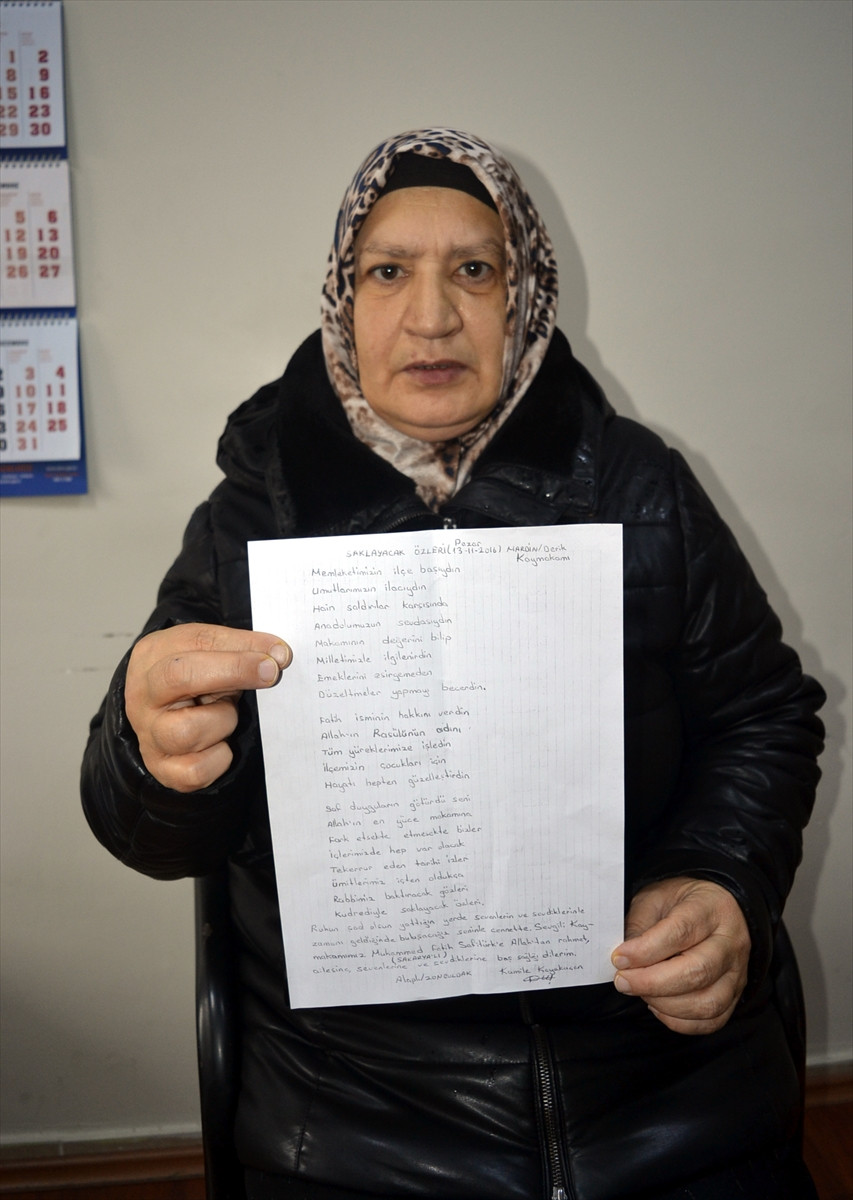 1 2
8 9
15 16
22 23
29 30
5 6
12 13
19 20
26 27
3 4
10 11
17 18
24 25
31
Pazar
SAKLAYACAK ÖZLERİ (13-11-2016) MARDİN/Derik
Kaymakamı
Memleketimizin ilçe başıydın
Umutlarımızın ilacıydın
Hain saldırılar karşısında
Anadolumuzun sevdasıydın
Makamının değerini bilip
Milletimizle ilgilenirdin
Emeklerini esirgemeden
Düzeltmeler yapmayı becerdin.
Fatih isminin hakkını verdin
Allah'ın Rasülünün adını
Tüm yüreklerimize işledin
İlçemizin çocukları için
Hayatı hepten güzelleştirdin
Saf duyguların götürdü seni
Allah'ın en yüce makamına
Fark etsekte etmesekte bizler
İçlerimizde hep var olacak
Tekerrur eden tardü izler
Ümitlerimiz içten oldukça
Rabbimiz baktıracak gözleri
Kudretiyle saklayacak özleri.
Ruhun şad olsun yattığın yerde sevenlerin ve sevdiklerinle
zamanı geldiğinde buluşacağız seninle cennette. Sevgili Kay-
makamımız Muhammed Fatih Safitürk'e Allah'tan rahmet,
(SAKARYALI)
ailesine, sevenlerine ve sevdiklerine baş sağlığı dilerim.
Alaplı/ZONGULDAK Kamile